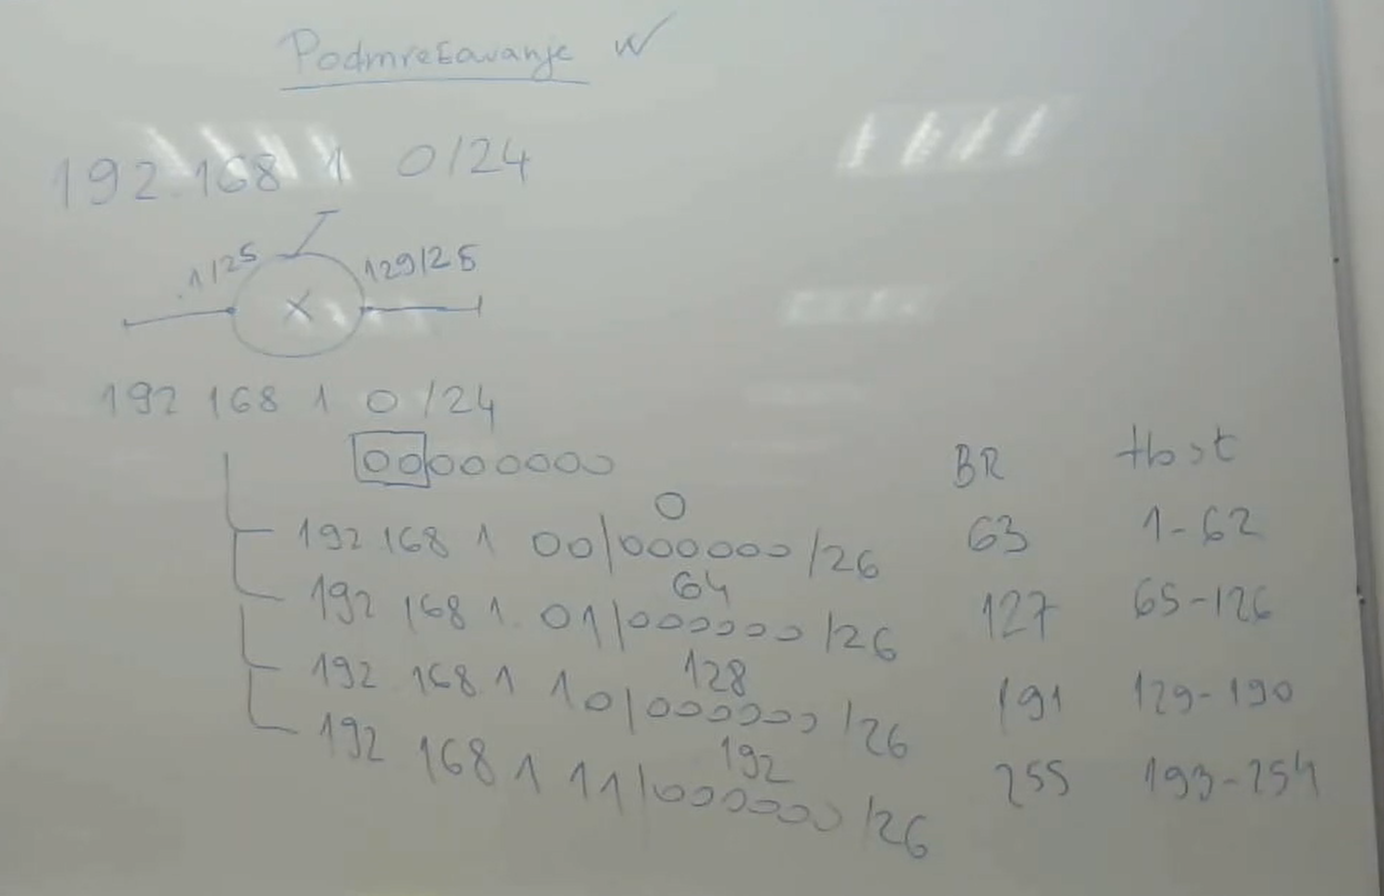 Podmrežavanje
192.168 1 0/24
.1/25 129/25
X
192 168 1 0 /24
00000000 BR Host
0
192.168 1 00|000000 /26 63 1-62
64
192 168 1. 01|000000 /26 127 65-126
128
192 168 1 10|000000 /26 191 129-190
192
192 168 1 11|000000 /26 255 193-254